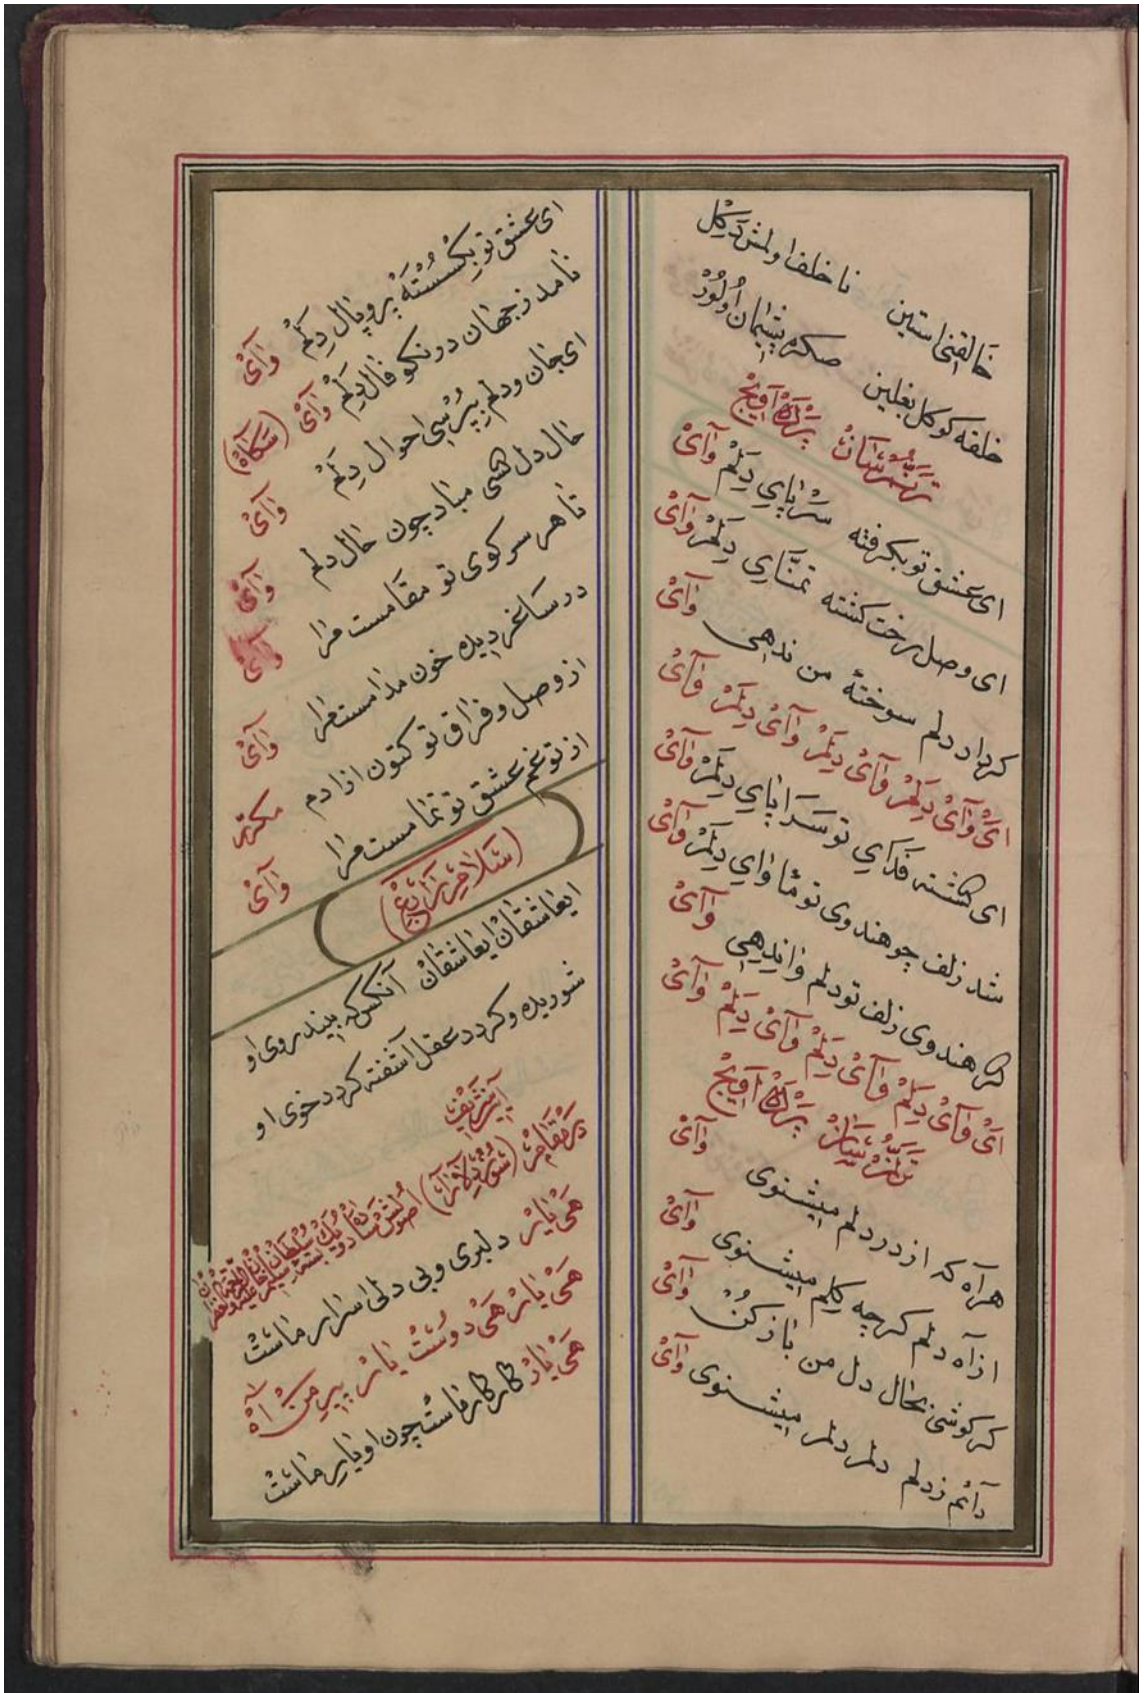 خالقنی استین ناخلف اولمش دکل
خلقه کوکل بغلین صکره پشیمان اولور
ترنم شانی پرده اویج
ای عشق تو بکرفته سرپای دلم وآی
ای وصل رخت کشته تمنّای دلم وآی
کرداد دلم سوختهٔ من ندهی وآی
ای وآی دلم وآی دلم وآی دلم وآی
ای کشته فدای تو سراپای دلم وآی
شد زلف چو هندوی تو مأوای دلم وآی
کر هندوی زلف تو دلم واندهی وآی
ای وآی دلم وآی دلم وآی دلم وآی
ترنم پرده اویج
هر آه که از درد دلم میشنوی وآی
از آه دلم کرچه کلم میشنوی وآی
کر کوشی بحال دل من باز کن وآی
دآئم ز دلم دلم دلم میشنوی وآی
ای عشق تو بکسسته پر و بال دلم وآی
نامد ز جهان دو نکو فال دلم وآی (سکاه)
ای جان و دلم بپرسی احوال دلم وآی
حال دل کسی مباد چون حال دلم وآی
تا هر سر کوی تو مقامست مرا وآی
در ساغر دیده خون مدامست مرا وآی
از وصل و فراق تو کنون ازادم مکرر
از تو غم عشق تو تمامست مرا وآی
(سلام رابع)
ایعاشقان ایعاشقان آنکس که بیند روی او
شوریده و کردد عقل آشفته کردد خوی او
آیین شریف
در مقام (شوق دلارا)
هی یار دلبری و بی دلی اسرار ماست
هی یار هی دوست یار پیر من آه
هی یار کار کار ماست چون او یار ماست